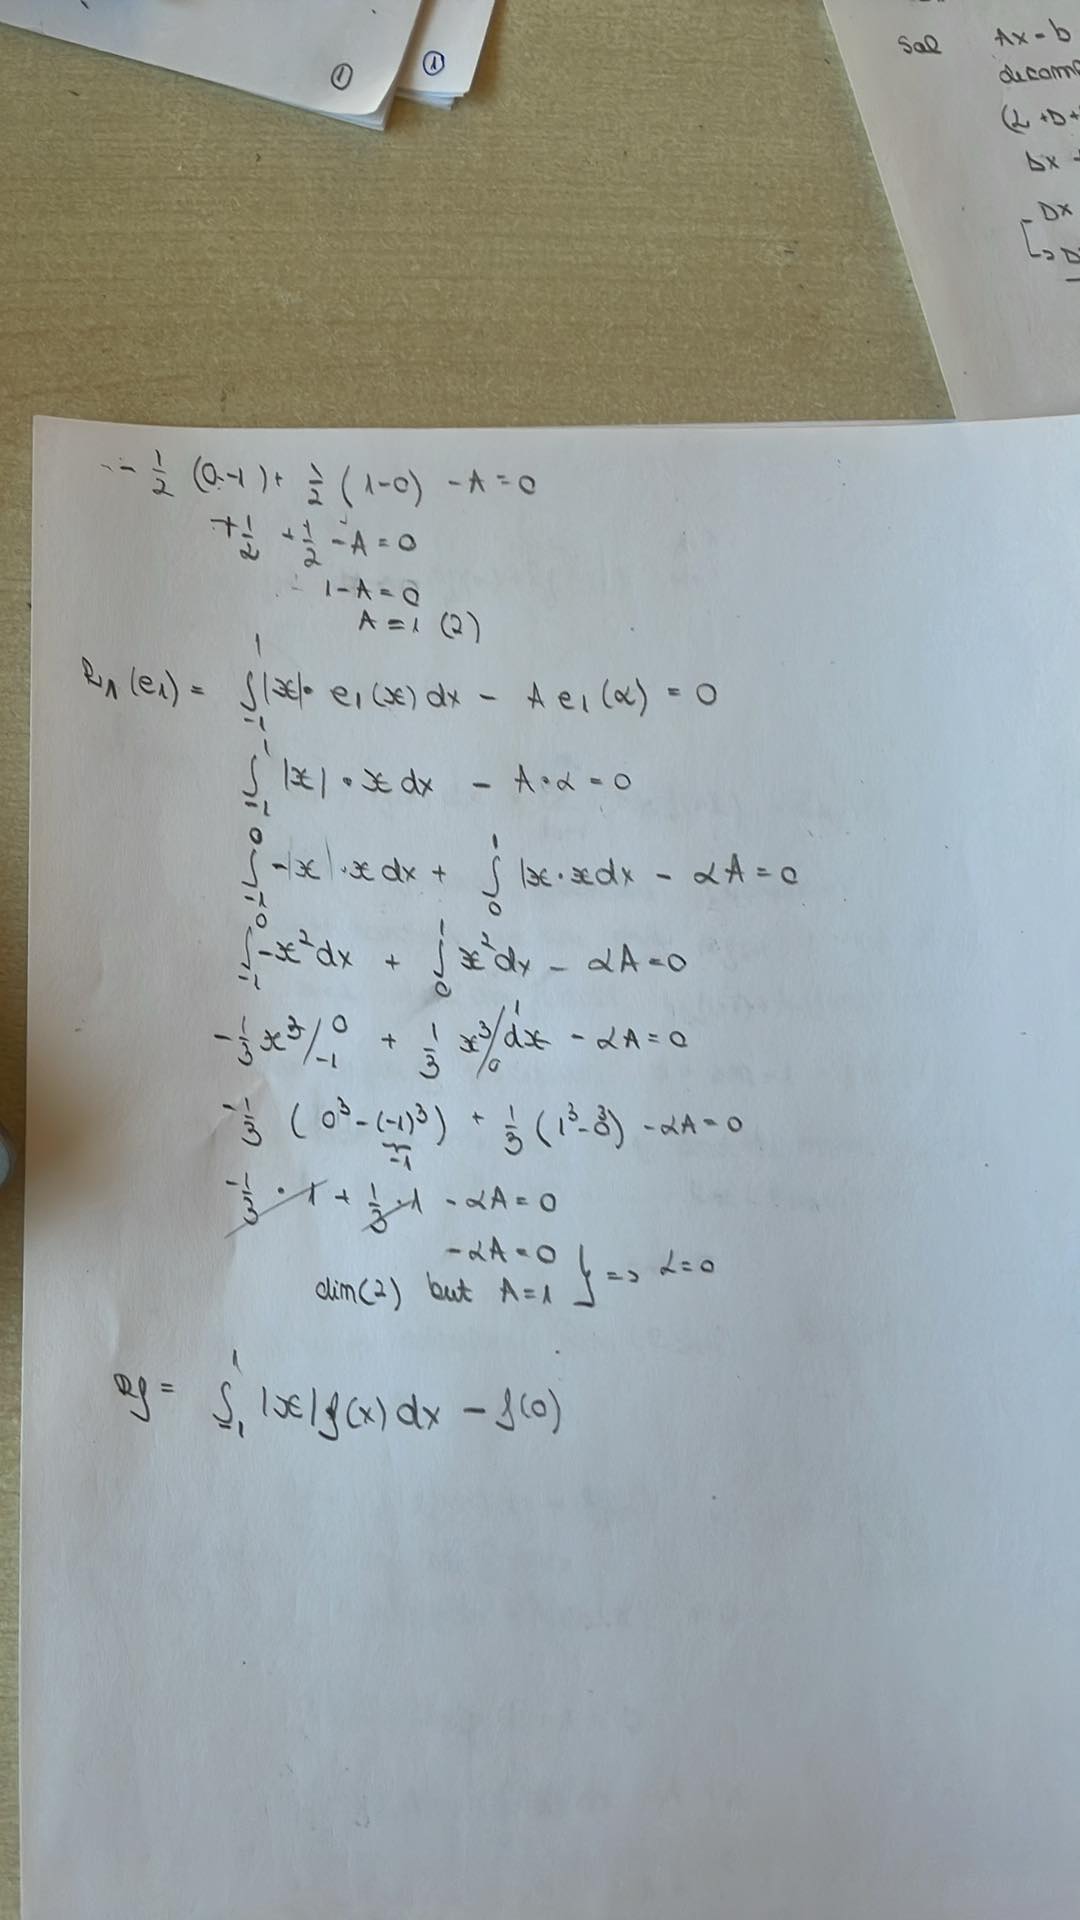 ①
①
Sol Ax = b
decom
(L + D +
Dx
Dx
- 1/2 (0-1) + 1/2 (1-0) - A = 0
+ 1/2 + 1/2 - A = 0
1 - A = 0
A = 1 (2)
R₁(e₁) = ∫₋₁¹ |x| · e₁(x) dx - A e₁(α) = 0
∫₋₁¹ |x| · x dx - A · α = 0
∫₋₁⁰ -|x| · x dx + ∫₀¹ |x · x dx - αA = 0
∫₋₁⁰ -x² dx + ∫₀¹ x² dx - αA = 0
- 1/3 x³ /₋₁⁰ + 1/3 x³ /₀¹ dx - αA = 0
- 1/3 (0³ - (-1)³) + 1/3 (1³ - 0³) - αA = 0
-1
- 1/3 · 1 + 1/3 · 1 - αA = 0
- αA = 0
din(2) but A = 1 } => α = 0
Rf = ∫₋₁¹ |x| f(x) dx - f(0)